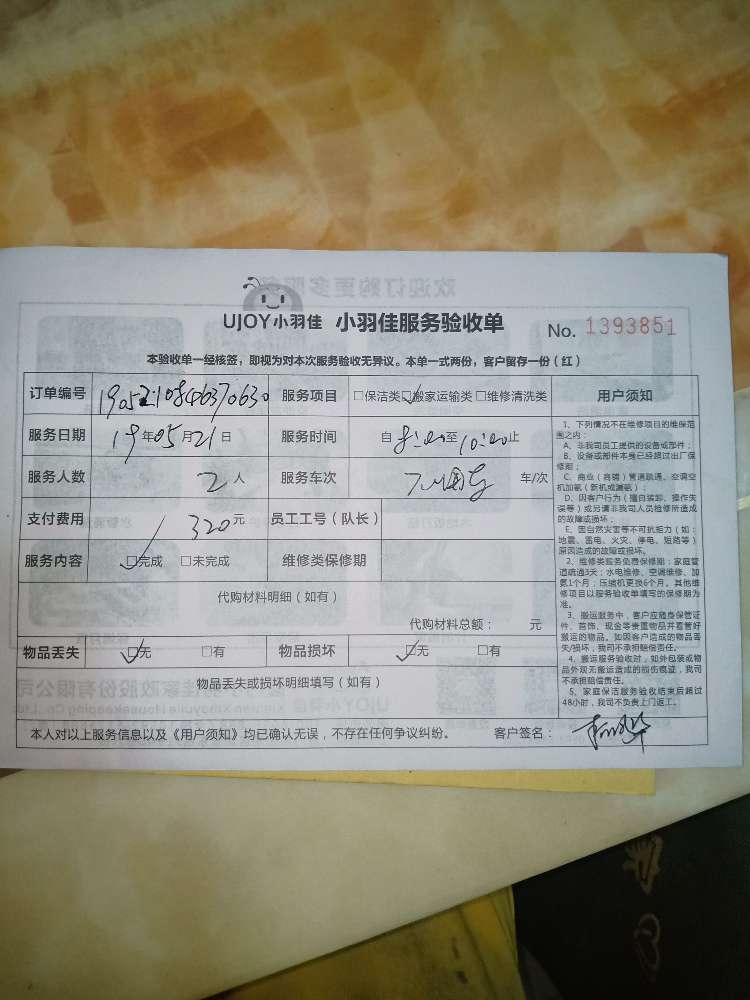 UJOY小羽佳 小羽佳服务验收单 No. 1393851
本验收单一经核签，即视为对本次服务验收无异议。本单一式两份，客户留存一份（红）
订单编号 服务项目 □保洁类☑搬家运输类 □维修清洗类 用户须知
服务日期 19年05月21日 服务时间 自8:00至10:00止
服务人数 2人 服务车次 车/次
支付费用 320元 员工工号（队长）
服务内容 ☑完成 □未完成 维修类保修期
代购材料明细（如有）
代购材料总额： 元
物品丢失 ☑无 □有 物品损坏 ☑无 □有
物品丢失或损坏明细填写（如有）
本人对以上服务信息以及《用户须知》均已确认无误，不存在任何争议纠纷。 客户签名：
1、下列情况不在维修项目的维保范
围之内：
A、非我司员工提供的设备或部件；
B、设备或部件本身已经超过出厂保
修期；
C、商业（高端）管道疏通、空调空
机加氨（新机或漏氨）；
D、因客户行为（擅自装卸、操作失
误等）或另请非我司人员维修所造成
的故障或损坏；
E、因自然灾害等不可抗力（如：
地震、雷电、火灾、停电、短路等）
原因造成的故障或损坏。
2、维修类服务免费保修期：家庭管
道疏通3天；水电维修、空调维修、加
氨1个月；压缩机更换6个月。其他维
修项目以服务验收单填写的保修期为
准。
3、搬运服务中，客户应随身保管证
件、首饰、现金等贵重物品并看管好
搬运的物品。如因客户造成的物品丢
失/损坏，我司不承担赔偿责任。
4、搬运服务验收时，如外包装或物
品外观无搬运造成的损伤痕迹，我司
不承担赔偿责任。
5、家庭保洁服务验收结束后超过
48小时，我司不负责上门返工。